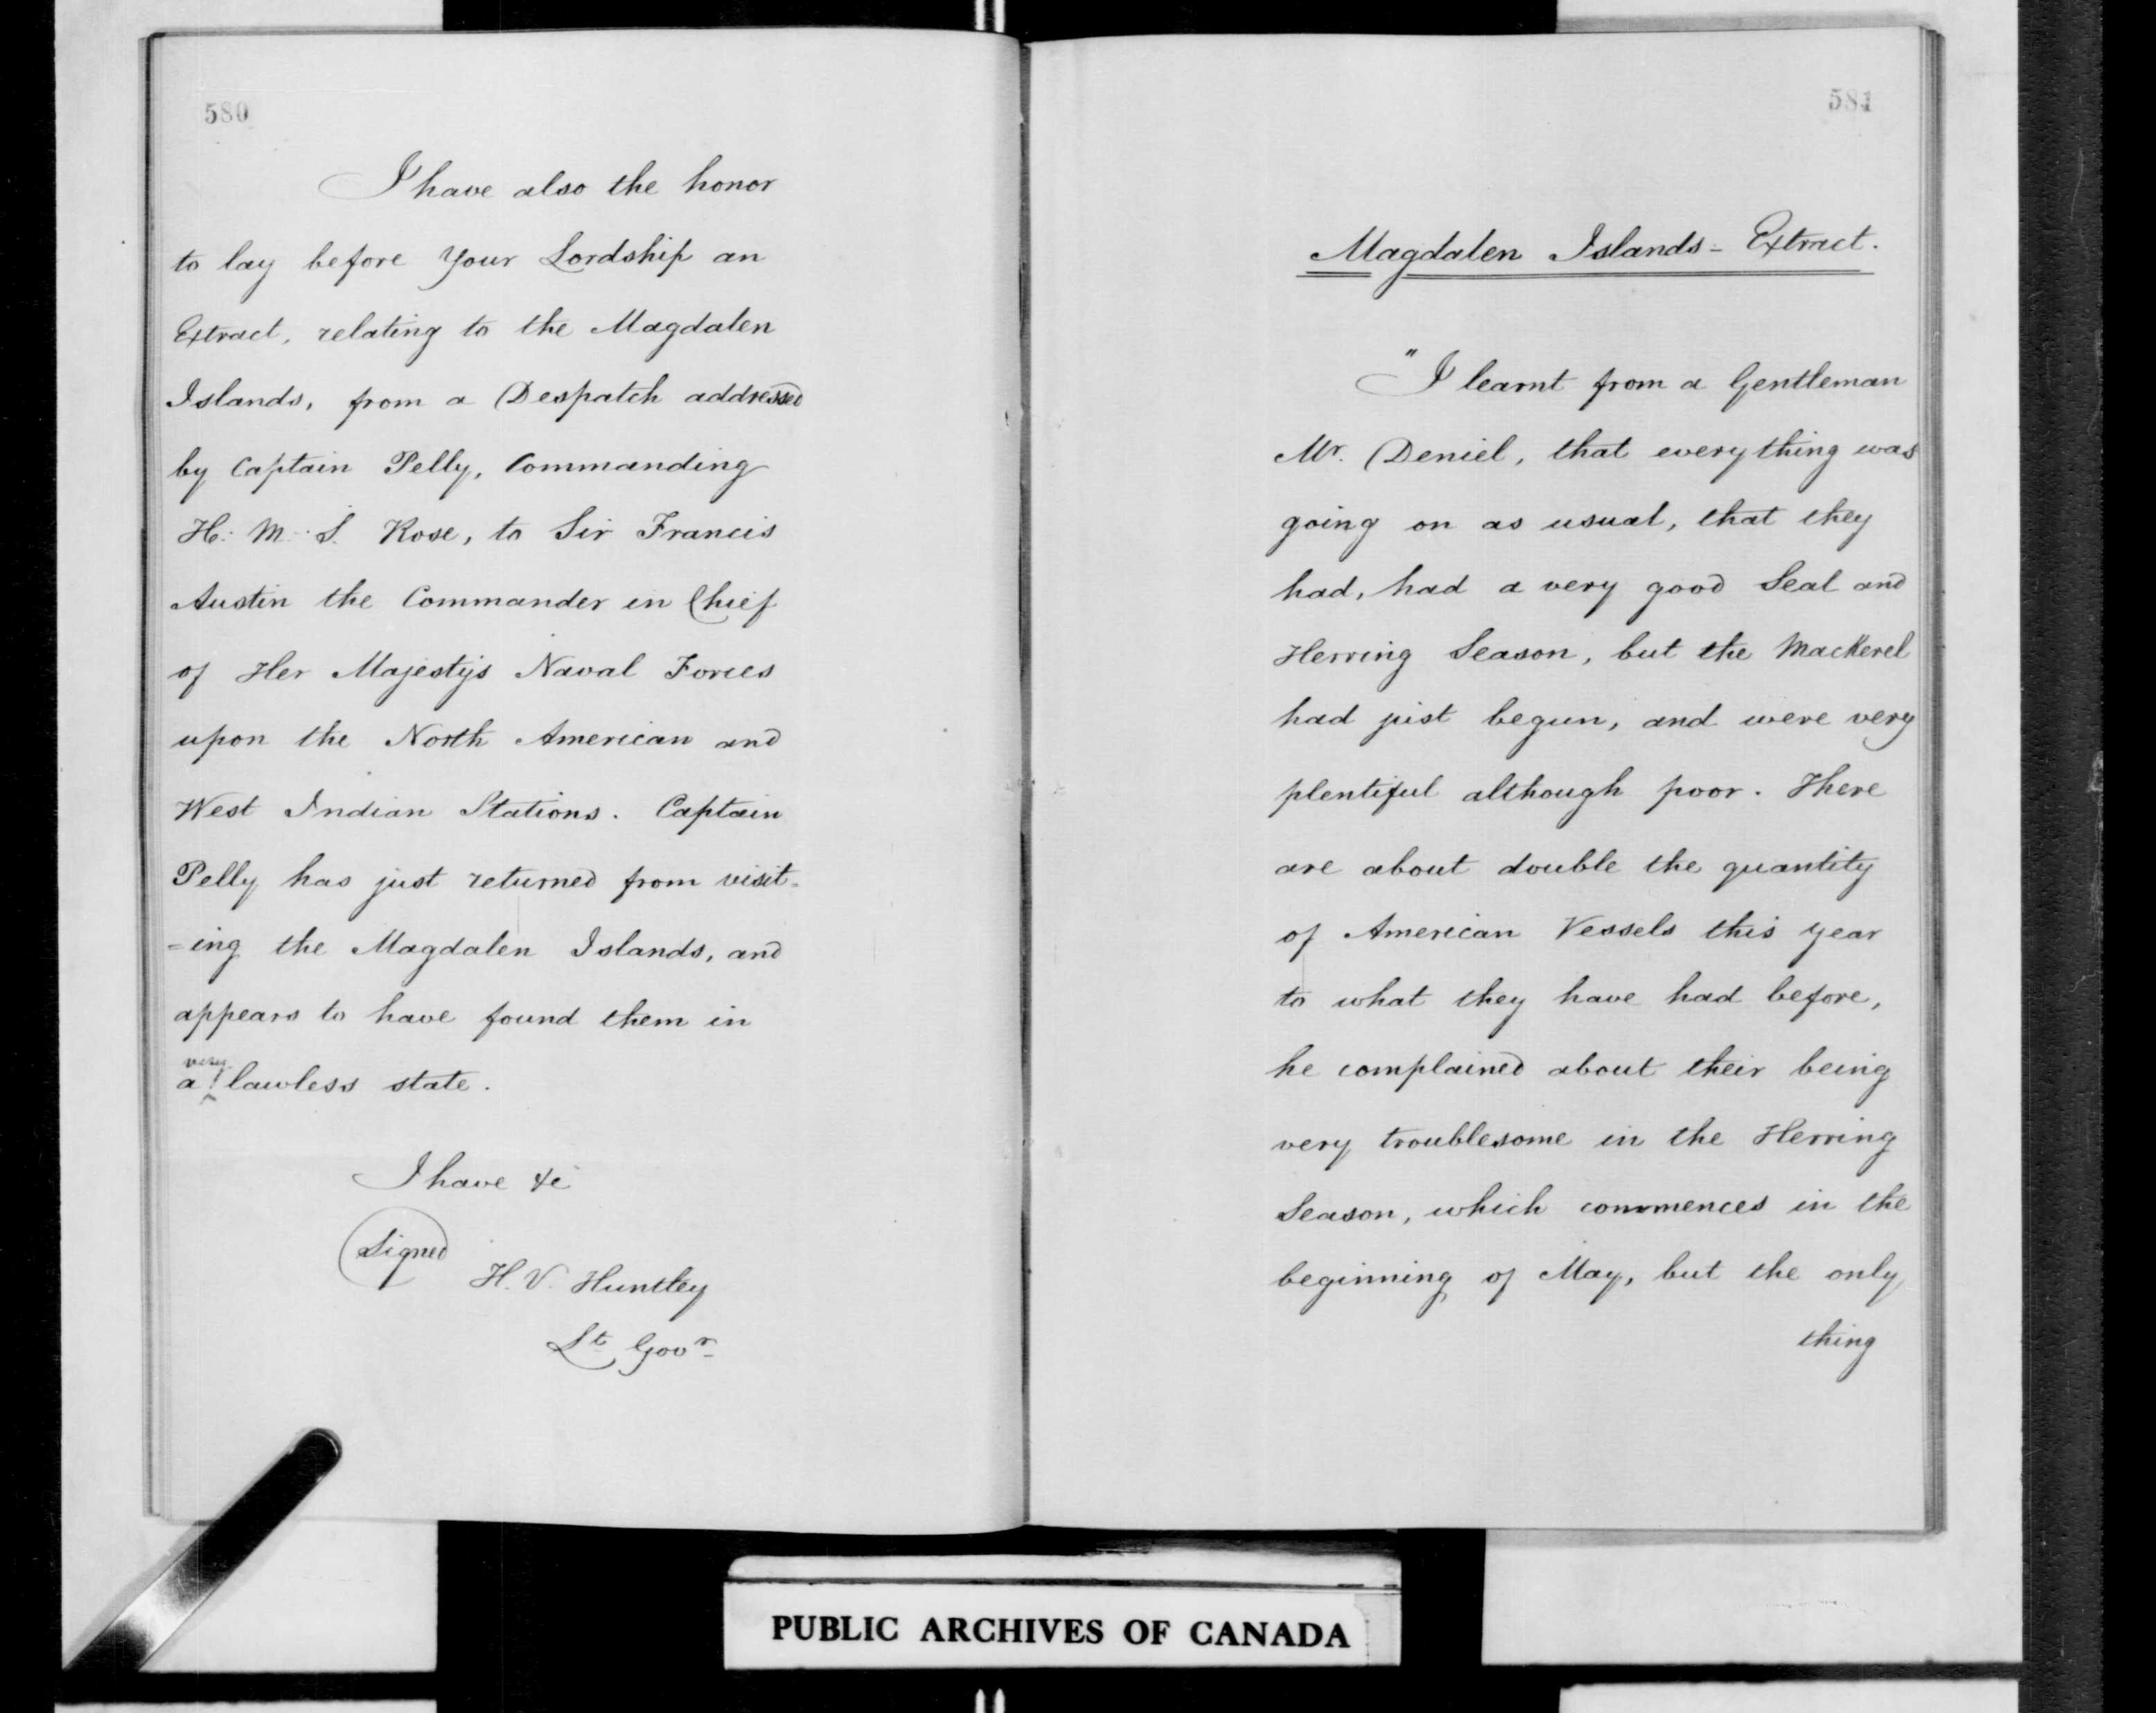 580
I have also the honor
to lay before Your Lordship an
Extract, relating to the Magdalen
Islands, from a Despatch addressed
by Captain Pelly, Commanding
H. M. S. Rose, to Sir Francis
Austin the Commander in Chief
of Her Majesty's Naval Forces
upon the North American and
West Indian Stations. Captain
Pelly has just returned from visit=
=ing the Magdalen Islands, and
appears to have found them in
a very lawless state.
I have &c
(Signed
H. V. Huntley
Lt Govr
581
Magdalen Islands - Extract.
"I learnt from a Gentleman
Mr. Deniel, that everything was
going on as usual, that they
had, had a very good Seal and
Herring Season, but the Mackerel
had just begun, and were very
plentiful although poor. There
are about double the quantity
of American Vessels this year
to what they have had before,
he complained about their being
very troublesome in the Herring
Season, which commences in the
beginning of May, but the only
thing
PUBLIC ARCHIVES OF CANADA